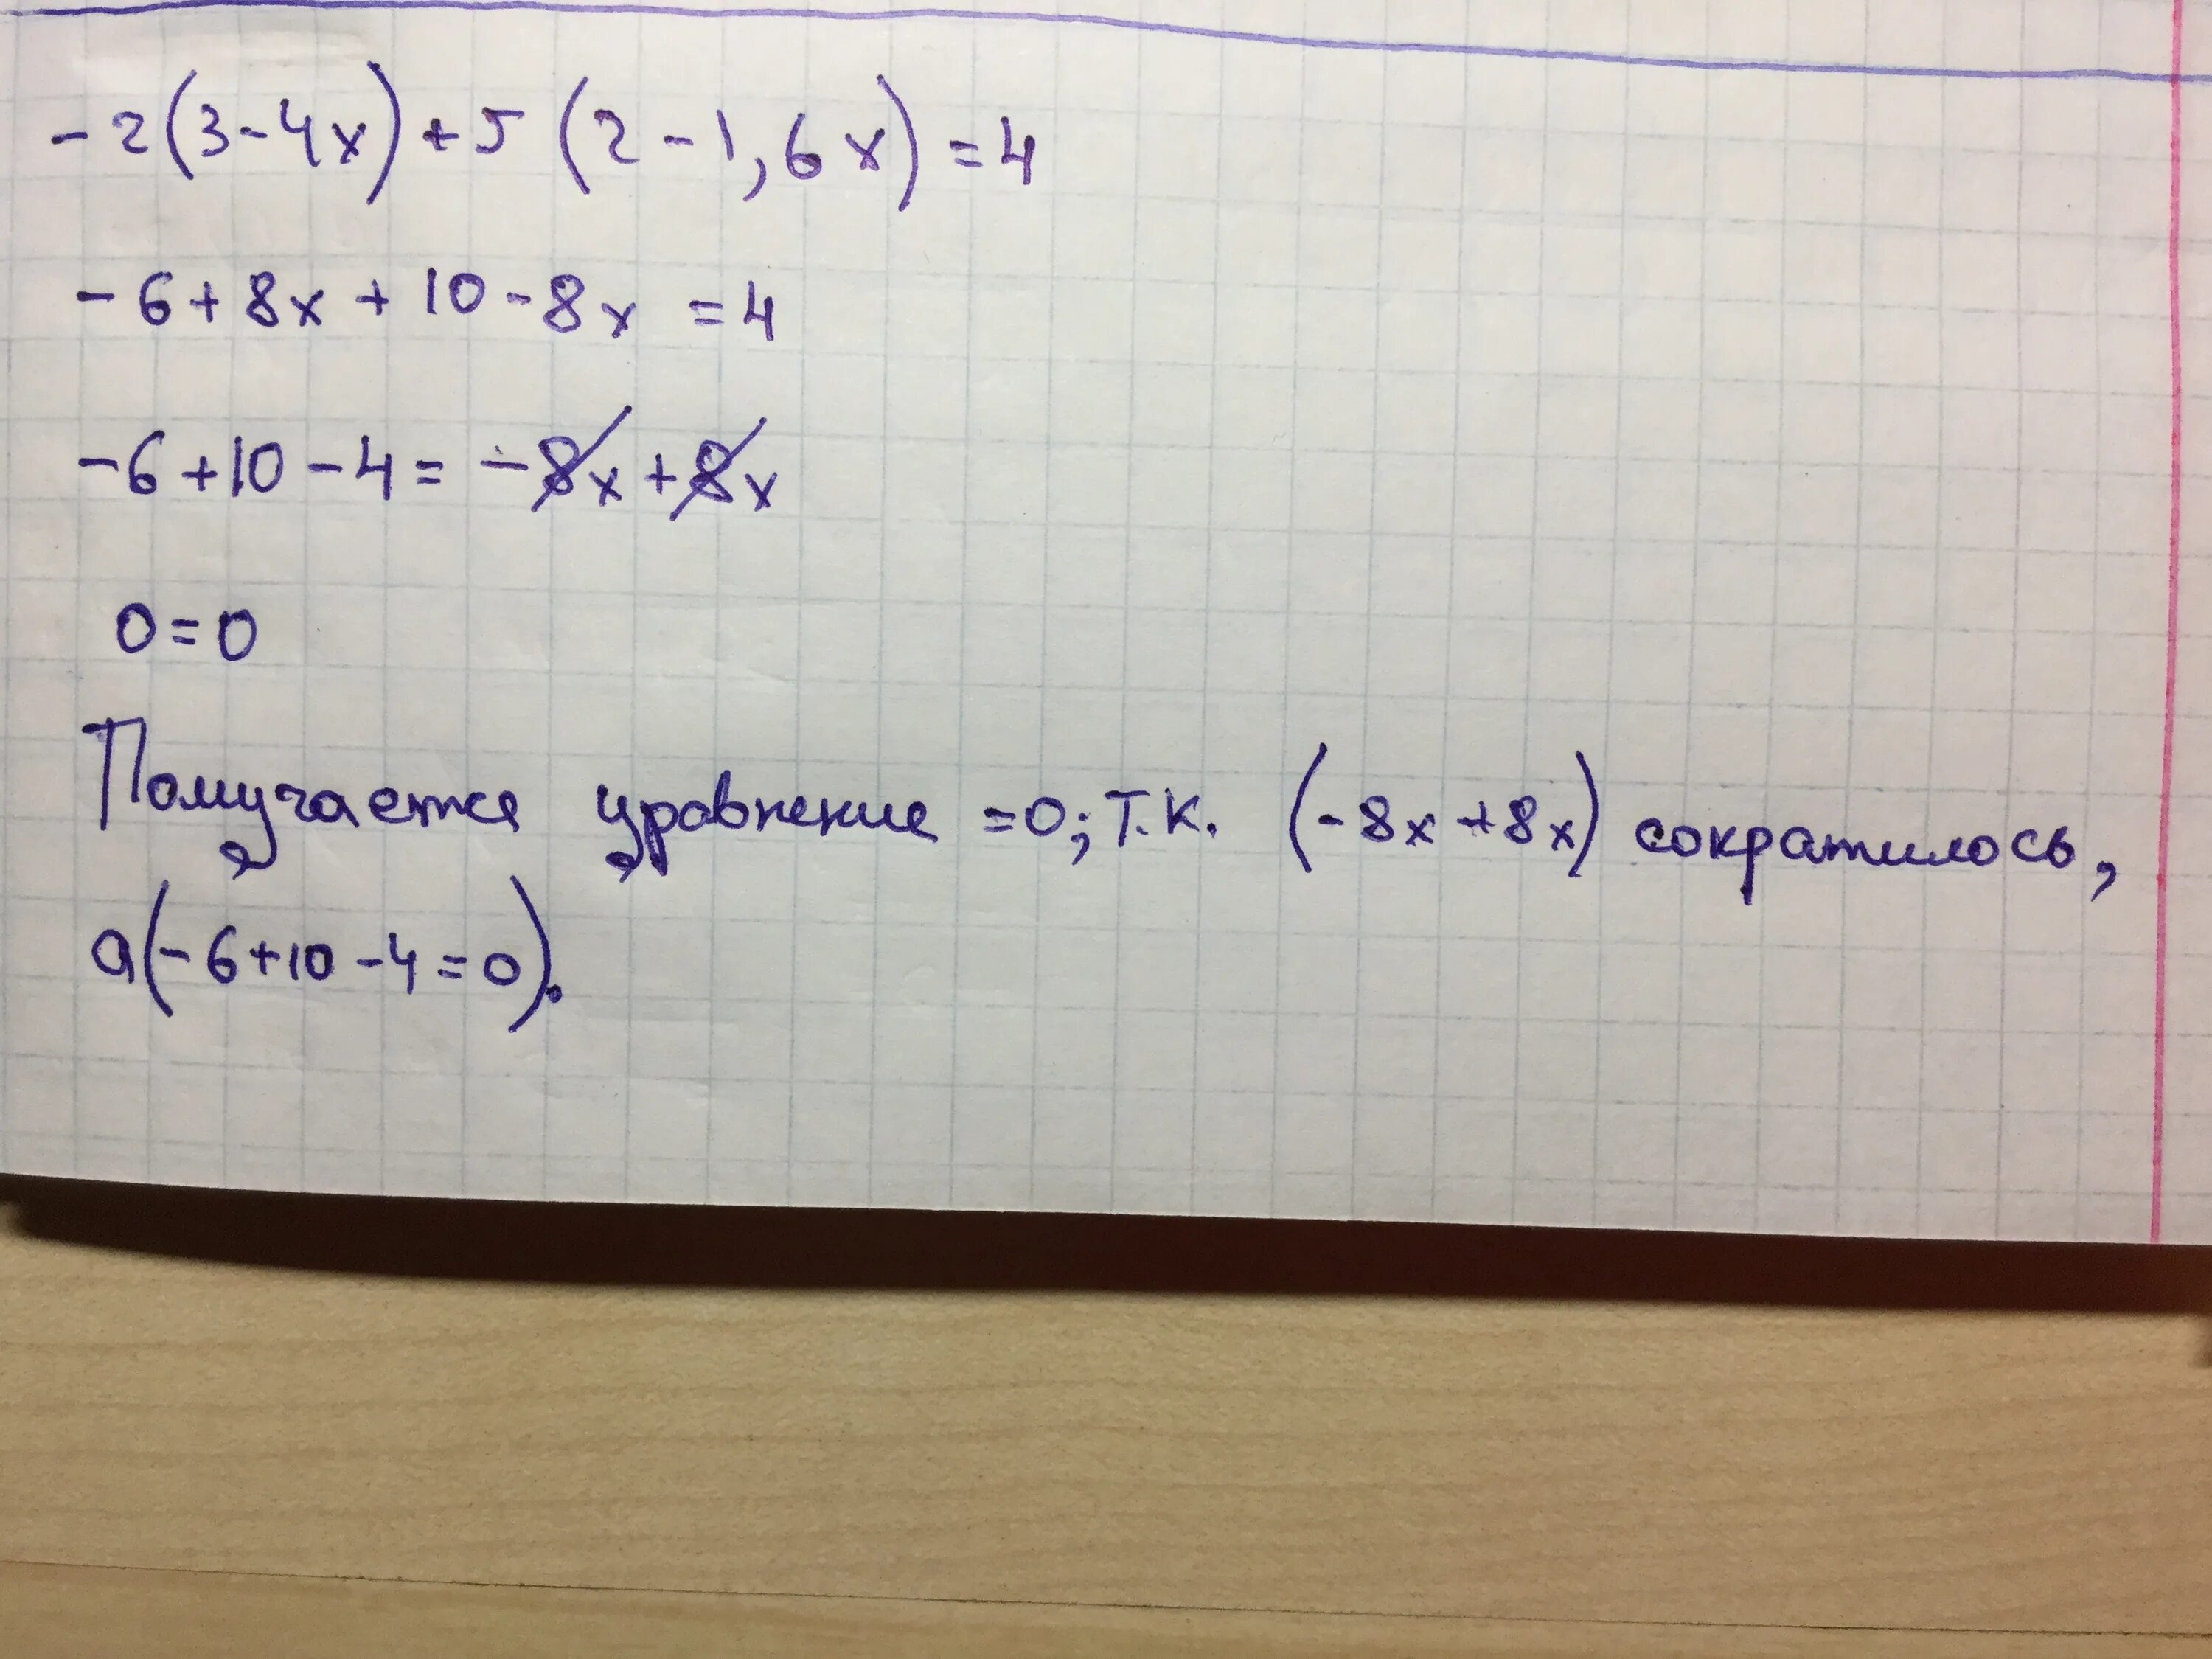 -2(3-4x)+5(2-1,6x)=4
-6+8x+10-8x=4
-6+10-4=-8x+8x
0=0
Получается уравнение =0; т.к. (-8x+8x) сократилось,
а(-6+10-4=0).